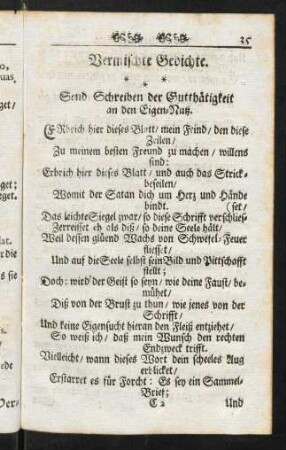 35
Vermischte Gedichte.
* * *
Send Schreiben der Gutthätigkeit
an den Eigen-Nutz.
ERbrich hier dieses Blatt/ mein Feind/ den diese
Zeilen/
Zu meinem besten Freund zu machen/ willens
sind:
Erbrich hier dieses Blatt/ und auch das Strick-
beseilen/
Womit der Satan dich um Herz und Hände
bindt. (set/
Das leichte Siegel zwar/ so diese Schrifft verschlies-
Zerreisset eh als diß/ so deine Seele hält/
Weil dessen glüend Wachs von Schwefel-Feuer
fliesset/
Und auf die Seele selbst sein Bild und Pittschafft
stellt;
Doch: wird der Geist so seyn/ wie deine Faust/ be-
mühet/
Diß von der Brust zu thun/ wie jenes von der
Schrifft/
Und keine Eigensucht hieran den Fleiß entziehet/
So weiß ich/ daß mein Wunsch den rechten
Endzweck trifft.
Vielleicht/ wann dieses Wort dein scheeles Aug
erblicket/
Erstarret es für Forcht: Es sey ein Sammel-
Brief;
C 2
Und